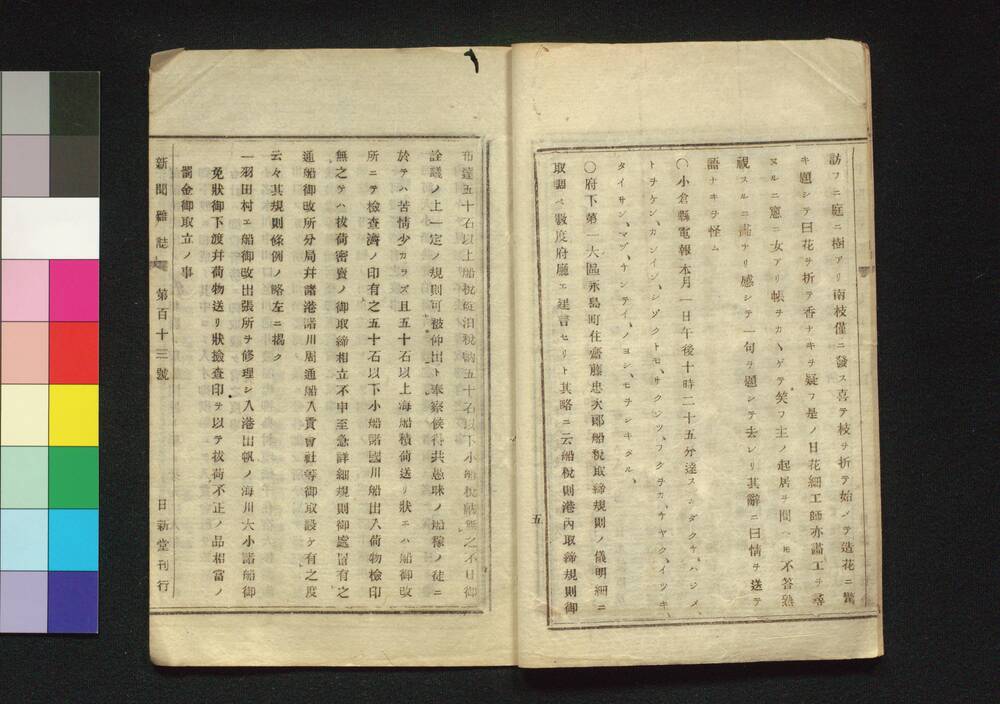 訪フニ庭ニ樹アリ南枝僅ニ發ス喜テ枝ヲ折テ始メテ造花ニ驚
キ題シテ曰花ヲ折テ香ナキヲ疑フ是ノ日花細工師亦畵工ヲ尋
ヌルニ窓ニ女アリ帳ヲカヽゲテ笑フ主ノ起居ヲ問ヘ𪜈不答熟
視スルニ畵ナリ感シテ一句ヲ題シテ去レリ其辭ニ曰情ヲ送テ
語ナキヲ怪ム
〇小倉縣電報本月一日午後十時二十五分達ス
〇府下第一大區永島町住齋藤忠次郎船稅取締規則ノ儀明細ニ
取調ベ數度府廳エ建言セリト其略ニ云船稅則港內取締規則御
五
布達五十石以上船稅碇泊稅納五十石以下小船稅
詮議ノ上一定ノ規則可被仰出ト奉察候得共愚昧ノ船稼ノ徒ニ
於テハ苦情少カラズ且五十石以上海船積荷送リ狀エハ船御改
所ニテ檢査濟ノ印有之五十石以下小船諸國川船出入荷物檢印
無之テハ拔荷密賣ノ御取締相立不申至急詳細規則御處置有之
通船御改所分局幷諸港諸川周通船入貢會社等御取設ケ有之度
云々其規則條例ノ略左ニ揭ク
一羽田村エ船御改出張所ヲ修理シ入港出帆ノ海川大小諸船御
免狀御下渡幷荷物送リ狀撿查印ヲ以テ拔荷不正ノ品相當ノ
罰金御取立ノ事
新聞雜誌 第百十三號 日新堂刊行